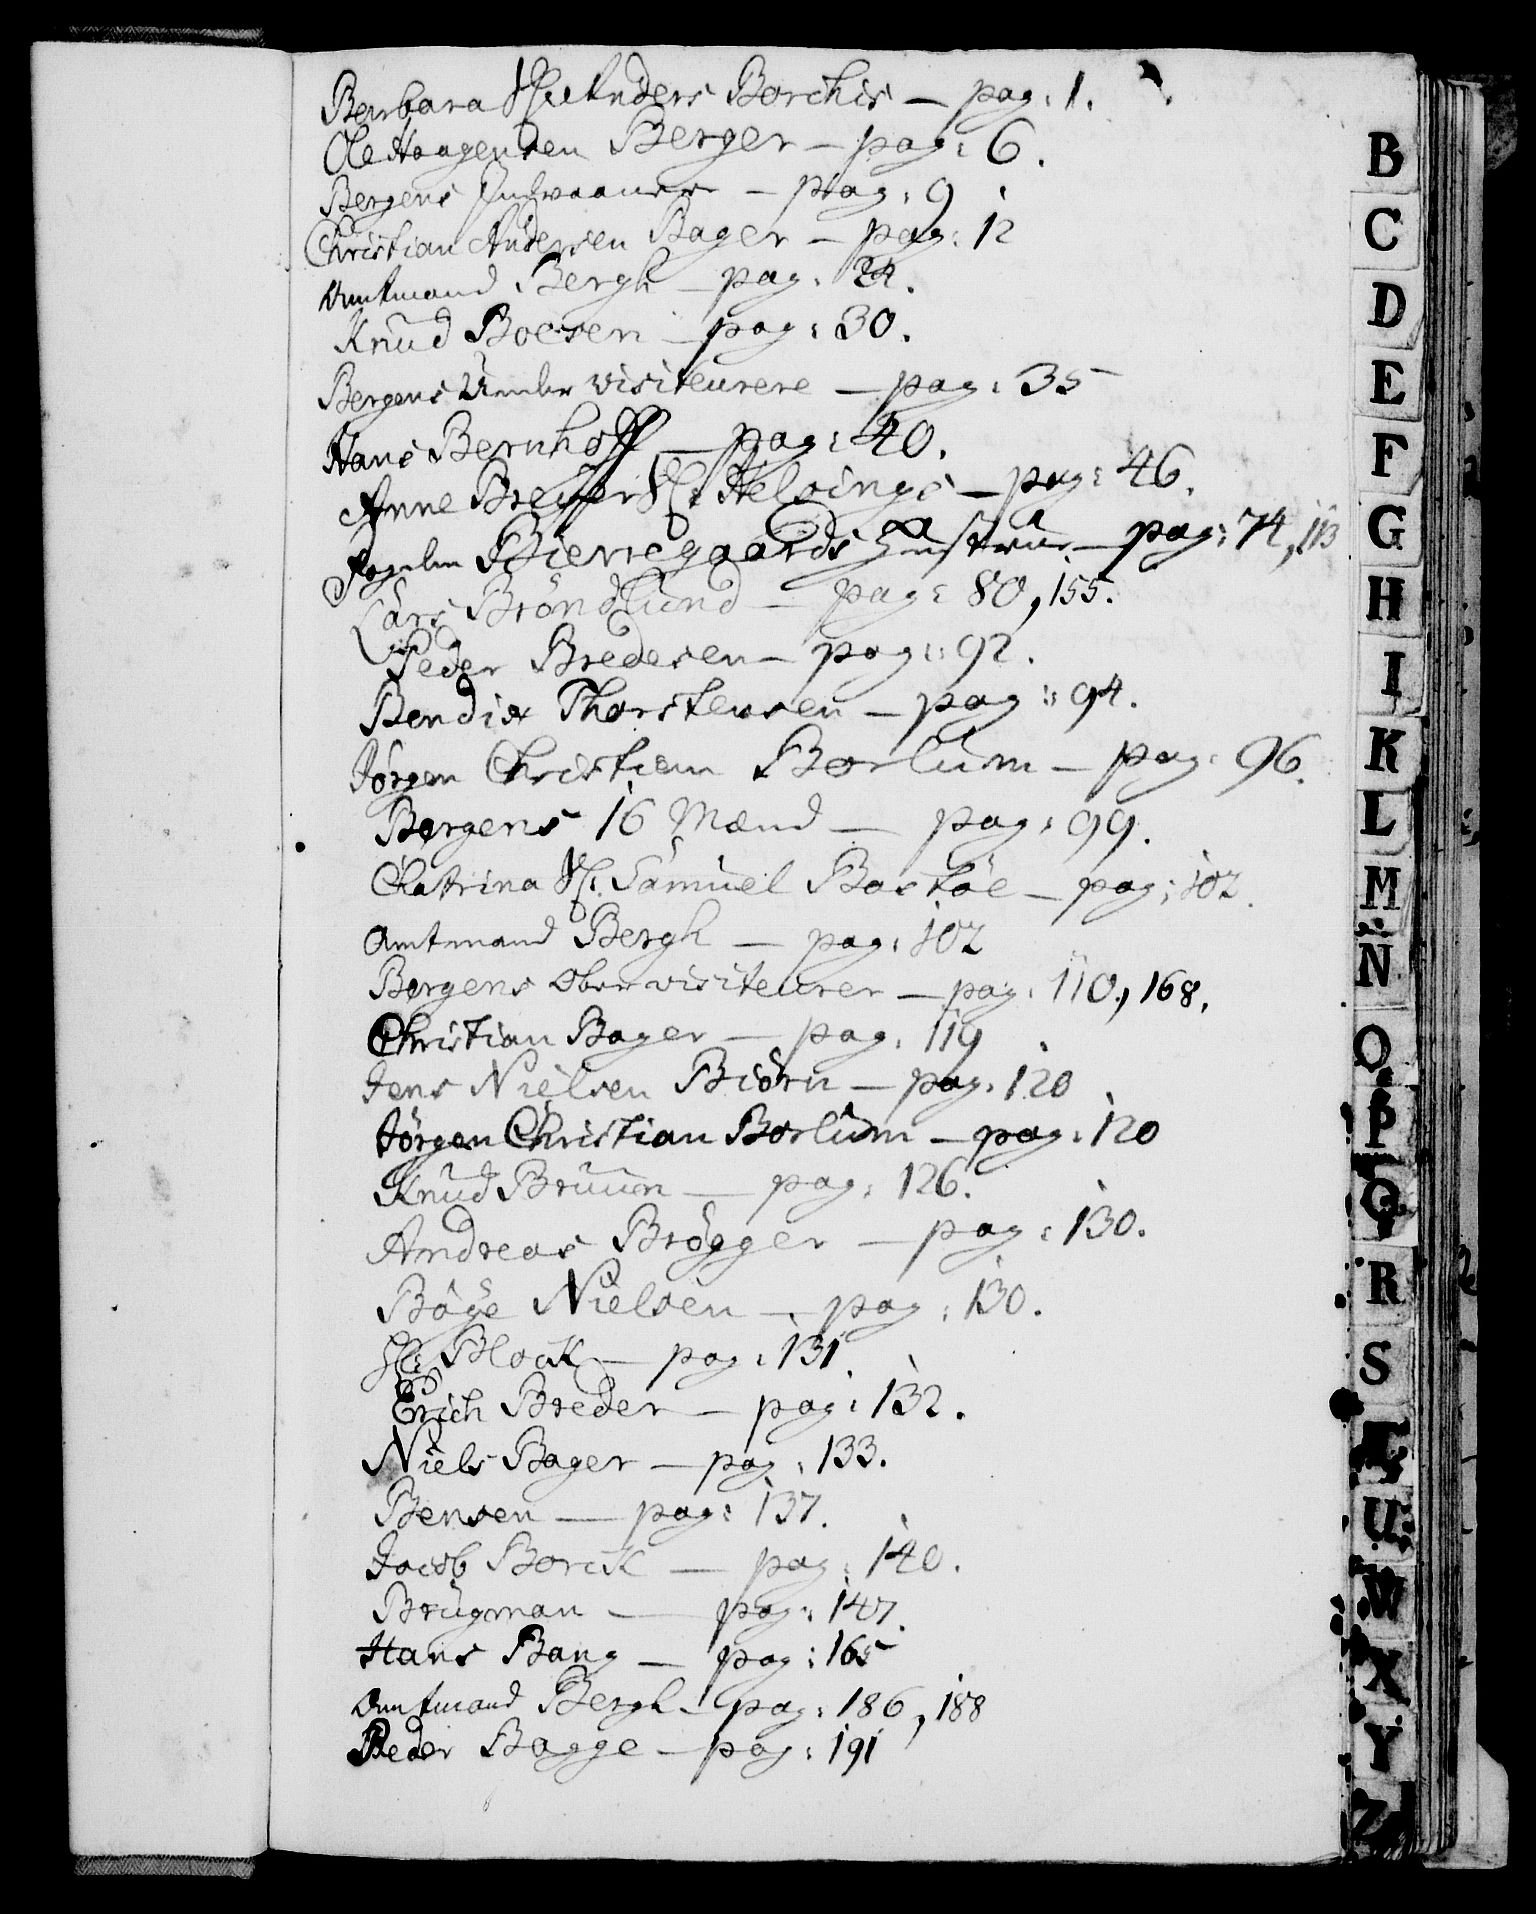 Barbara Sl: Anders Borchis — pag: 1.
Ole Haagensen Berger — pag: 6.
Bergens Indvaanere — pag: 9
Christian Andersen Bager — pag: 12
Amtmand Bergh — pag: 24.
Knud Boesen — pag: 30.
Bergens Under visiteurere — pag: 35
Hans Bernhoff — pag: 40.
Anne Breyer Sl: Helsings — pag: 46.
Bierregaards — pag: 74, 113
Lars Bröndlund — pag: 80, 155.
Peder Bredesen — pag: 92.
Bendix Thorstensen — pag: 94.
Jörgen Christian Borlum — pag: 96.
Bergens 16 Mænd — pag: 99.
Chatrina Sl: Samuel Bastöe — pag: 102.
Amtmand Bergh — pag: 102
Bergens Ober visiteurer — pag: 110, 168.
Christian Bager — pag: 119
Jens Nielsen Biörn — pag: 120
Jörgen Christian Borlum — pag: 120
Knud Bruun — pag: 126.
Andreas Brögger — pag: 130.
Böye Nielsen — pag: 130.
Sl: Block — pag: 131.
Erich Breder — pag: 132.
Niels Bager — pag: 133.
Bensen — pag: 137.
Jacob Borck — pag: 140.
Brugman — pag: 147.
Hans Bang — pag: 165
Amtmand Bergh — pag: 186, 188
Peder Bagge — pag: 191
B
C
D
E
F
G
H
I
K
L
M
N
O
P
Q
R
S
T
U
W
X
Y
Z